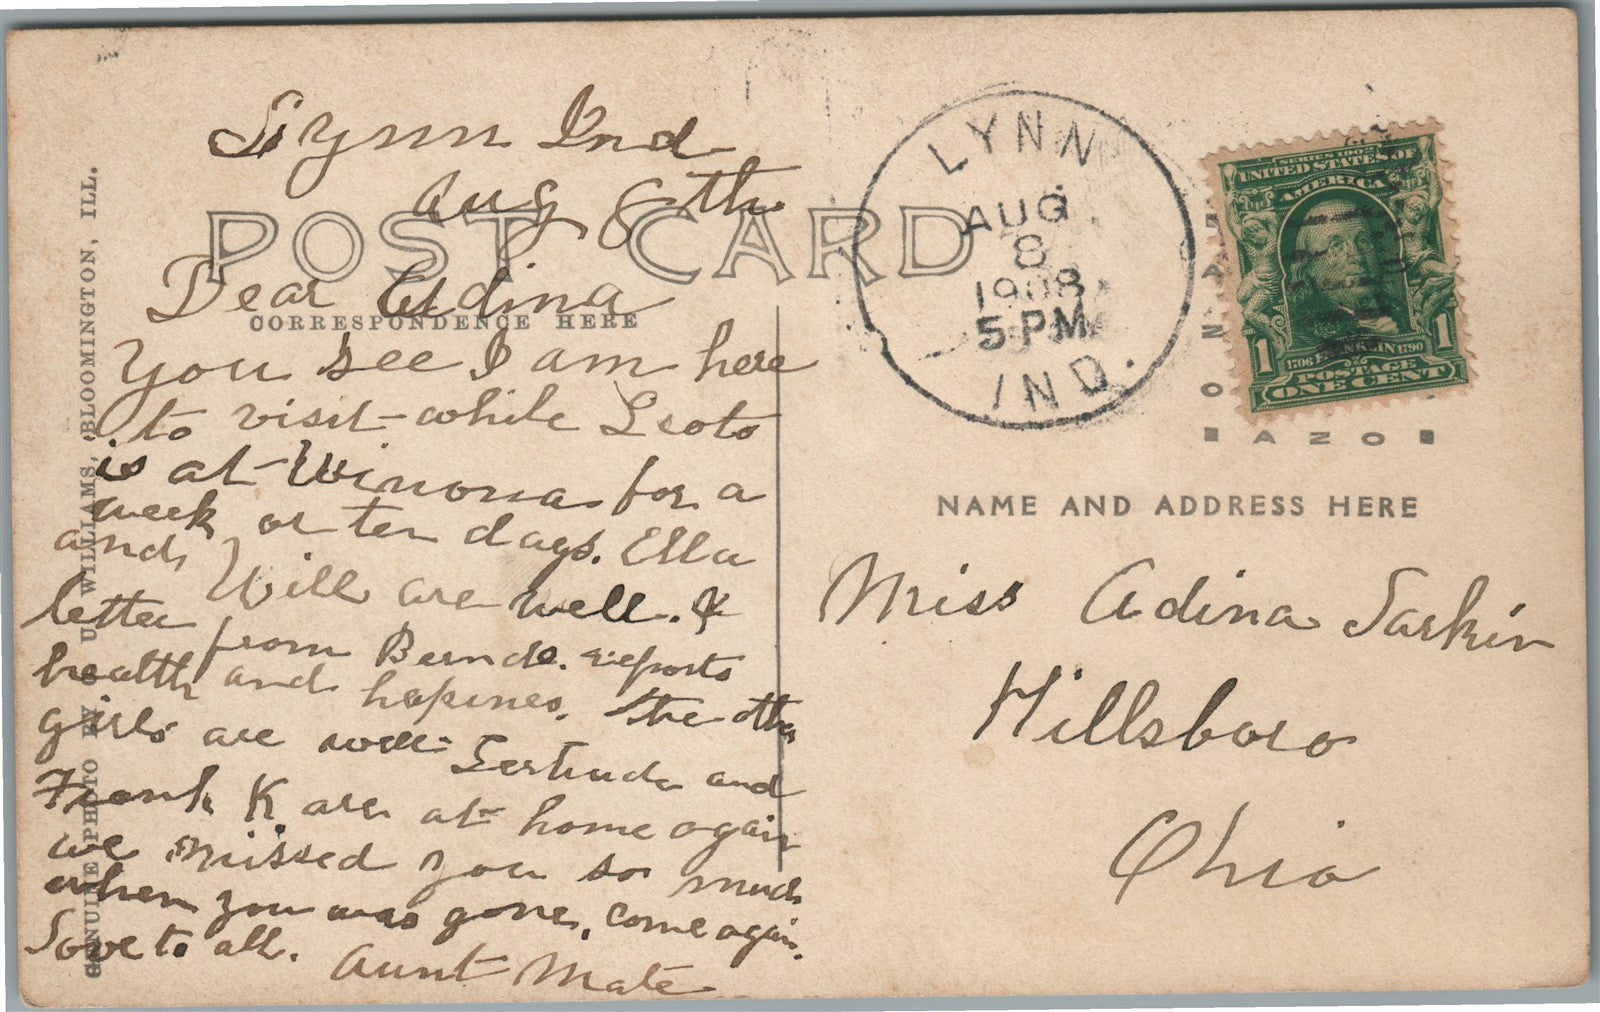 Lynn Ind
Aug 8th
POST CARD
Dear Adina
CORRESPONDENCE HERE
You see I am here
to visit while Leoto
is at Winona for a
week or ten days. Ella
and Will are well. &
letter from Bernde. reports
health and hapines. The other
girls are well Gertrude and
Frank K are at home again
we missed you so much
when you was gone, come again.
Love to all.
Aunt Mate
GENUINE PHOTO BY C U WILLIAMS, BLOOMINGTON, ILL.
LYNN
AUG
8
1908
5 PM
IND.
SERIES 1902
UNITED STATES OF
AMERICA
1706 FRANKLIN 1790
1 1
POSTAGE
ONE CENT
AZO
NAME AND ADDRESS HERE
Miss Adina Larkin
Hillsboro
Ohio